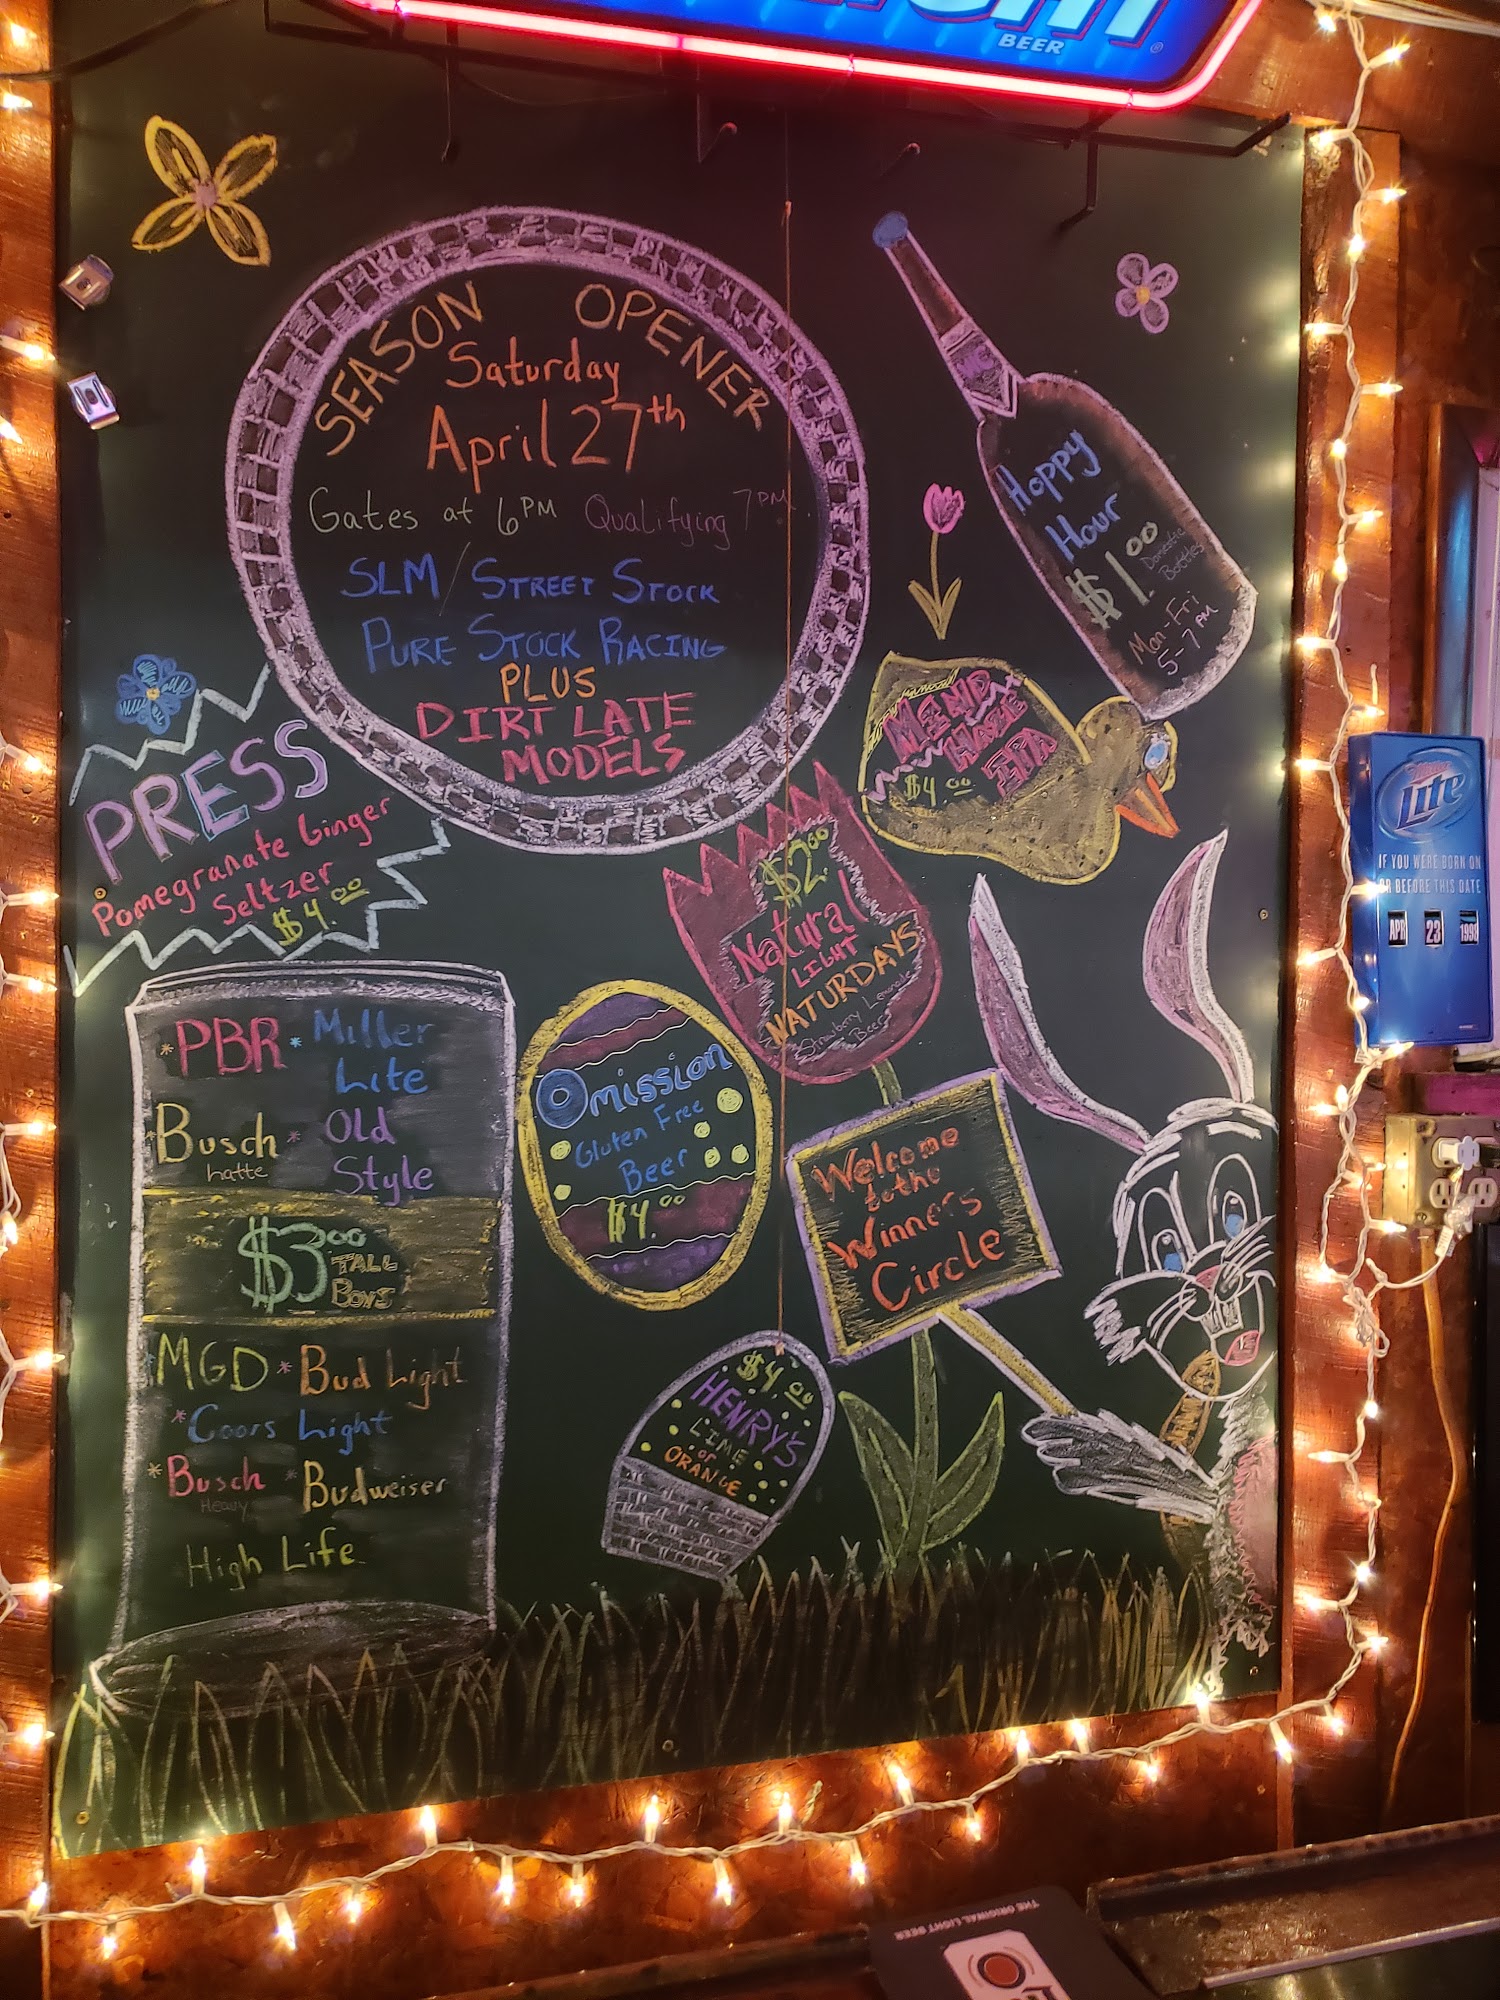 BEER
SEASON OPENER
Saturday
April 27th
Gates at 6PM Qualifying 7PM
SLM/STREET STOCK
PURE STOCK RACING
PLUS
DIRT LATE
MODELS
Hoppy
Hour
$1.00
Domestic
Bottles
Mon-Fri
5-7 PM
PRESS
Pomegranate Ginger
Seltzer
$4.00
MIND
HAZE
IPA
$4.00
$2.00
Natural
LIGHT
NATURDAYS
Strawberry Lemonade
Beer
Miller
Lite
IF YOU WERE BORN ON
OR BEFORE THIS DATE
APR 23 1998
*PBR * Miller
Lite
*Busch * Old
Latte Style
$3.00
TALL
BOYS
*MGD * Bud Light
*Coors Light
*Busch * Budweiser
Heavy
High Life
Omission
Gluten Free
Beer
$4.00
Welcome
to the
Winner's
Circle
$4.00
HENRY'S
LIME
or
ORANGE
THE ORIGINAL LIGHT BEER